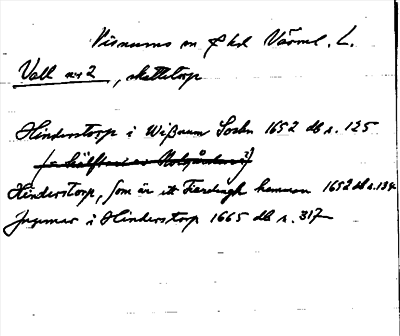 Visnums m fl hd Värml. L.
Vall nr 2, skattetorp
Hinderstorp i Wißnum Sochn 1652 db s. 125
Hinderstorp, som är ett Fierdingh hemman 1652 db s. 134
Ingemar i Hinderstorp 1665 db s. 317